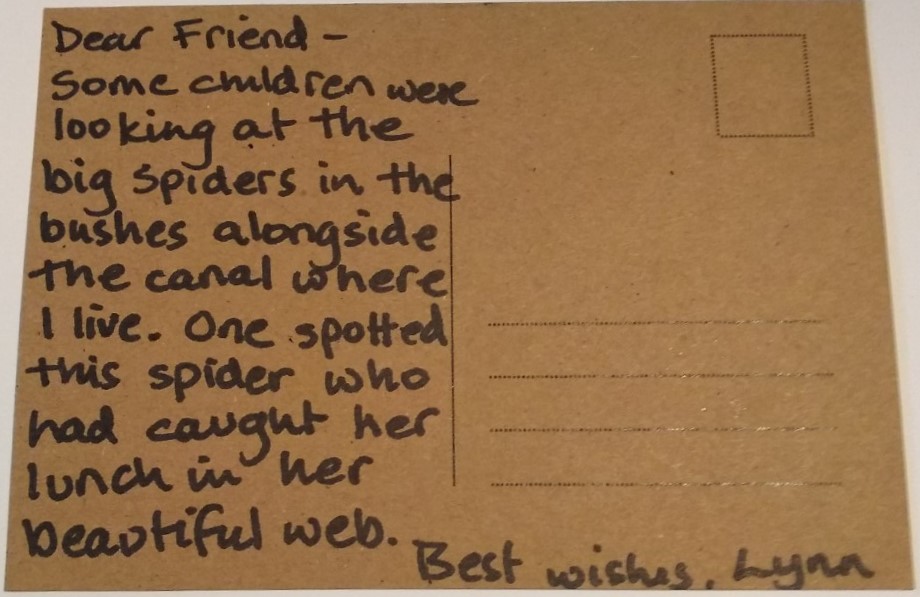 Dear Friend -
Some children were
looking at the
big spiders in the
bushes alongside
the canal where
I live. One spotted
this spider who
had caught her
lunch in her
beautiful web.
Best wishes, Lynn